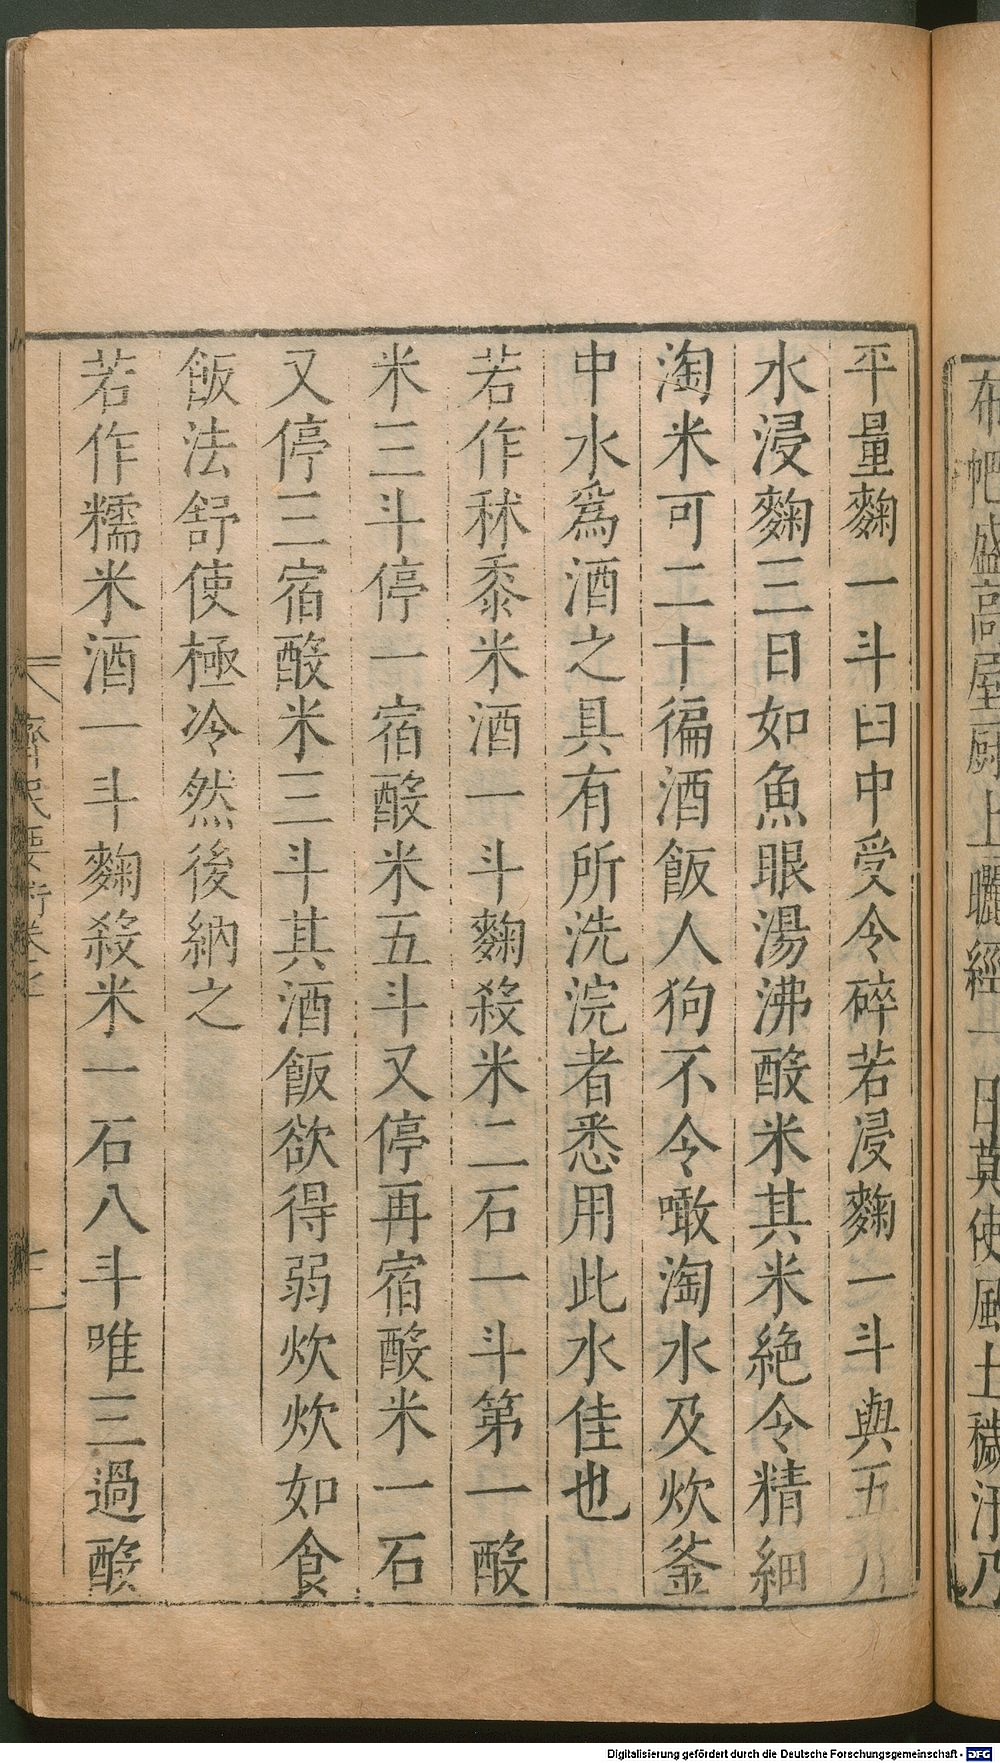 布帊盛高屋厨上曬經一日莫使風土穢汙乃
平量麴一斗臼中受令碎若浸麴一斗與五八
水浸麴三日如魚眼湯沸酘米其米絶令精細
淘米可二十徧酒飯人狗不令噉淘水及炊釜
中水爲酒之具有所洗浣者悉用此水佳也
若作秫黍米酒一斗麴殺米二石一斗第一酘
米三斗停一宿酘米五斗又停再宿酘米一石
又停三宿酘米三斗其酒飯欲得弱炊炊如食
飯法舒使極冷然後納之
若作糯米酒一斗麴殺米一石八斗唯三過酘
齊民要術卷七
Digitalisierung gefördert durch die Deutsche Forschungsgemeinschaft - DFG